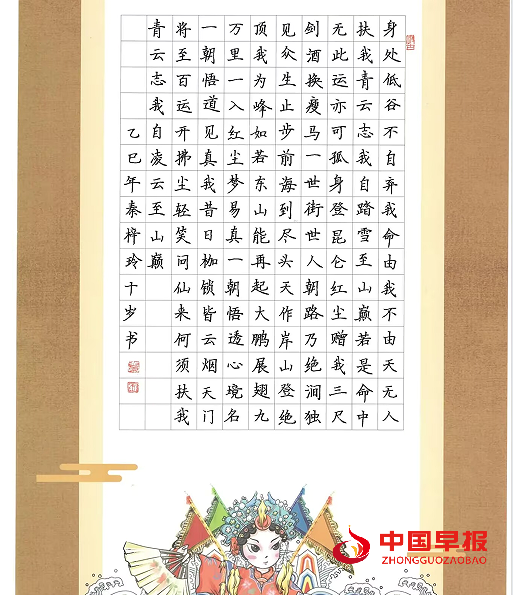 身处低谷不自弃我命由我不由天无人
扶我青云志我自踏雪至山巅若是命中
无此运亦可孤身登昆仑红尘赠我三尺
剑酒换瘦马一世街世人朝路乃绝涧独
见众生止步前海到尽头天作岸山登绝
顶我为峰如若东山能再起大鹏展翅九
万里一入红尘梦易真一朝悟透心境名
一朝悟道见真我昔日枷锁皆云烟天门
将至百运开拂尘轻笑问仙来何须扶我
青云志我自凌云至山巅
乙巳年秦梓玲十岁书
中国早报
ZHONGGUOZAOBAO